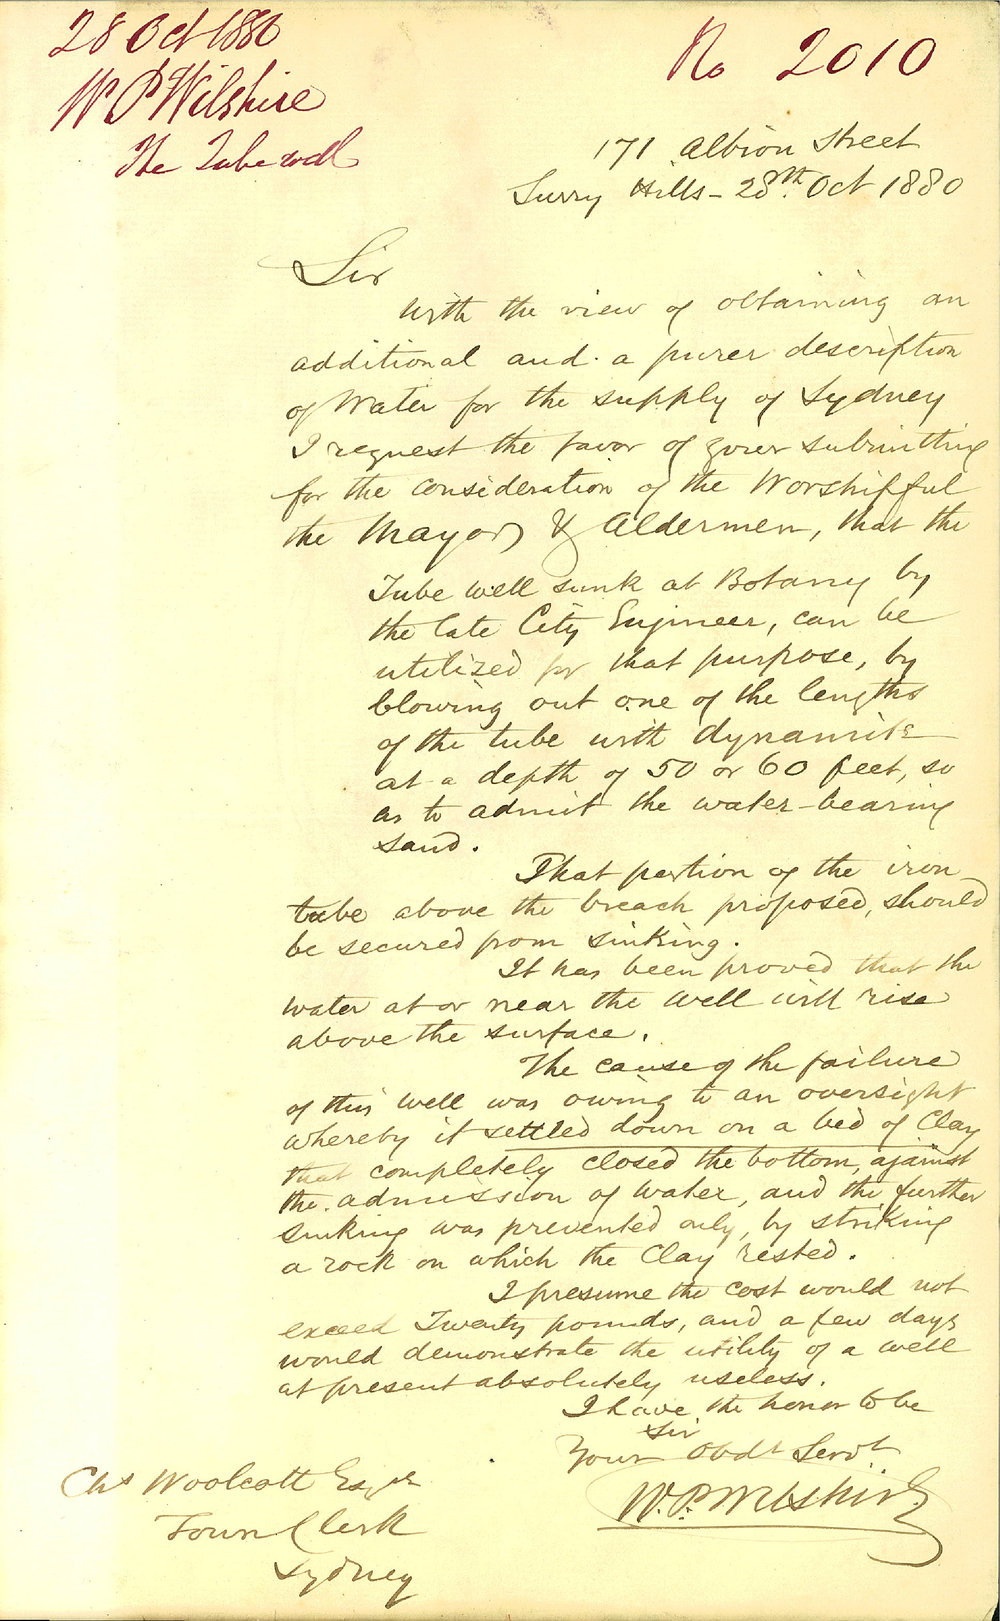 28 Oct 1880
W P Wilshire
The Tube well
No 2010
171 Albion Street
Surry Hills - 28th. Oct 1880
Sir
With the view of obtaining an
additional and a purer description
of Water for the supply of Sydney
I request the favor of your submitting
for the consideration of the Worshipful
the Mayor & Aldermen, that the
Tube well sunk at Botany by
the late City Engineer, can be
utilized for that purpose, by
blowing out one of the lengths
of the tube with dynamite
at a depth of 50 or 60 feet, so
as to admit the water-bearing
sand.
That portion of the iron
tube above the breach proposed, should
be secured from sinking.
It has been proved that the
water at or near the well will rise
above the surface.
The cause of the failure
of this well was owing to an oversight
whereby it settled down on a bed of Clay
that completely closed the bottom, against
the admission of Water, and the further
sinking was prevented only, by striking
a rock on which the Clay rested.
I presume the cost would not
exceed Twenty pounds, and a few days
would demonstrate the utility of a well
at present absolutely useless.
I have the honor to be
Sir
Your Obdt Servt.
W. P. Wilshire
Chs Woolcott Esqre
Town Clerk
Sydney